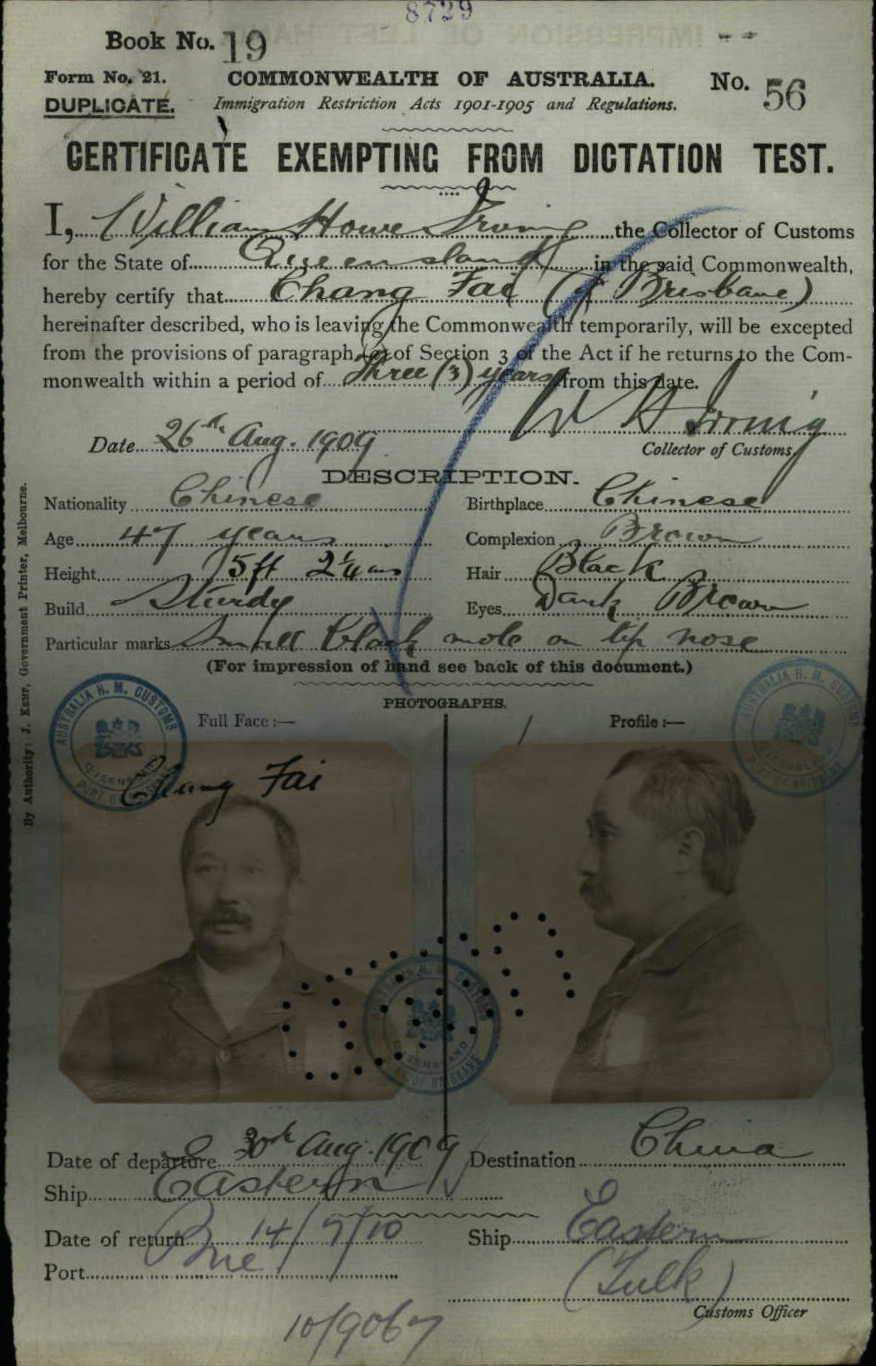 8729
Book No. 19
Form No. 21. COMMONWEALTH OF AUSTRALIA. No. 56
DUPLICATE. Immigration Restriction Acts 1901-1905 and Regulations.
CERTIFICATE EXEMPTING FROM DICTATION TEST.
I, William Howe Irving the Collector of Customs
for the State of Queensland in the said Commonwealth,
hereby certify that Chang Fai (of Brisbane)
hereinafter described, who is leaving the Commonwealth temporarily, will be excepted
from the provisions of paragraph (a) of Section 3 of the Act if he returns to the Com-
monwealth within a period of Three (3) years from this date.
W H Irving
Date 26th Aug. 1909 Collector of Customs
DESCRIPTION.
Nationality Chinese Birthplace Chinese
Age 47 years Complexion Brown
Height 5ft 2¼ ins Hair Black
Build Sturdy Eyes Dark Brown
Particular marks Small black mole on tip nose
(For impression of hand see back of this document.)
PHOTOGRAPHS.
Full Face :— Profile :—
AUSTRALIA H. M. CUSTOMS
QUEENSLAND
Chang Fai
Date of departure 30th Aug. 1909 Destination China
Ship Eastern
Date of return 14/7/10 Ship Eastern
Port Bne (Tulk)
Customs Officer
10/9067
By Authority: J. Kemp, Government Printer, Melbourne.